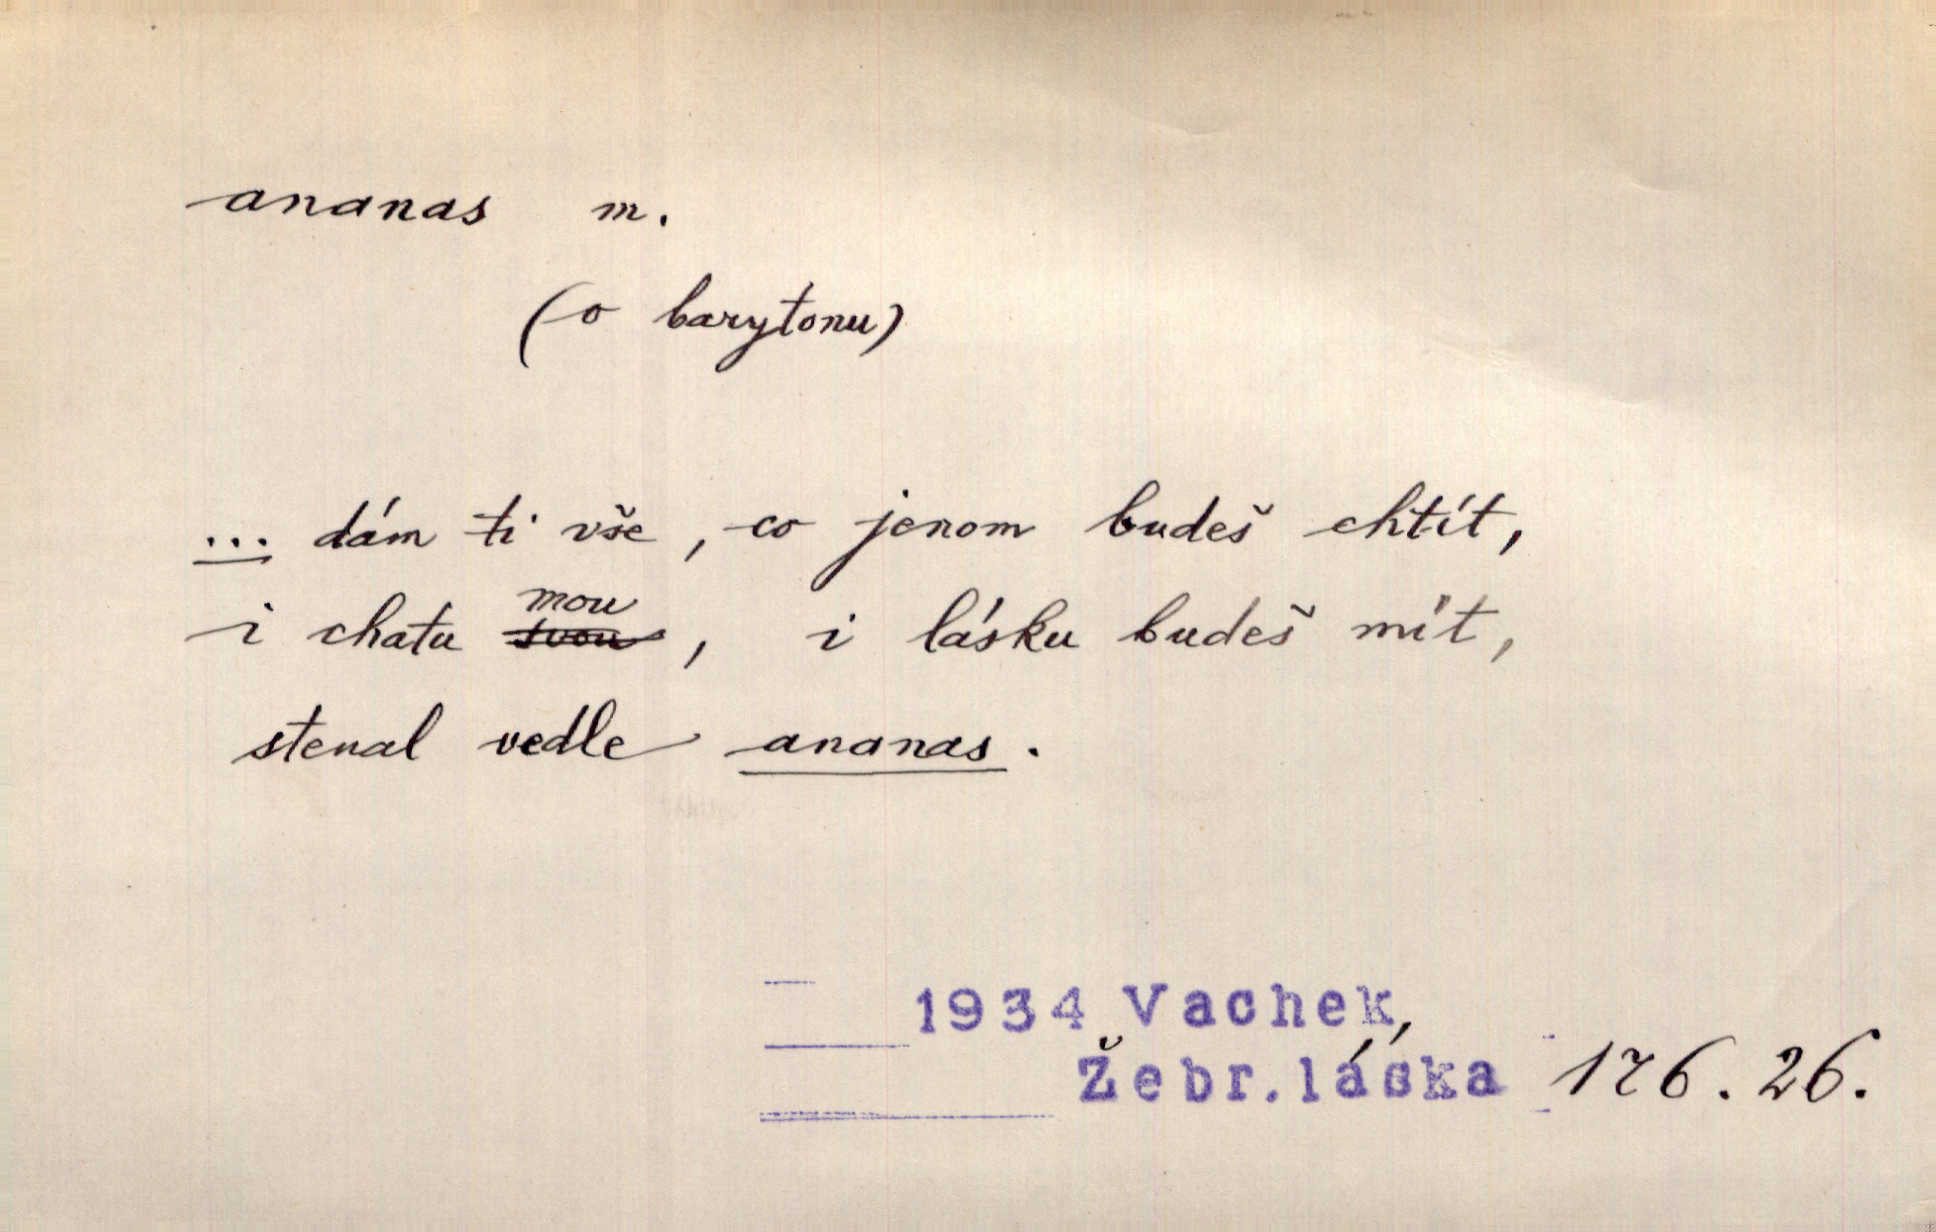 ananas m.
(o barytonu)
... dám ti vše, co jenom budeš chtít,
mou
i chatu svou, i lásku budeš mít,
stenal vedle ananas.
1934 Vachek,
Žebr.láska 176.26.